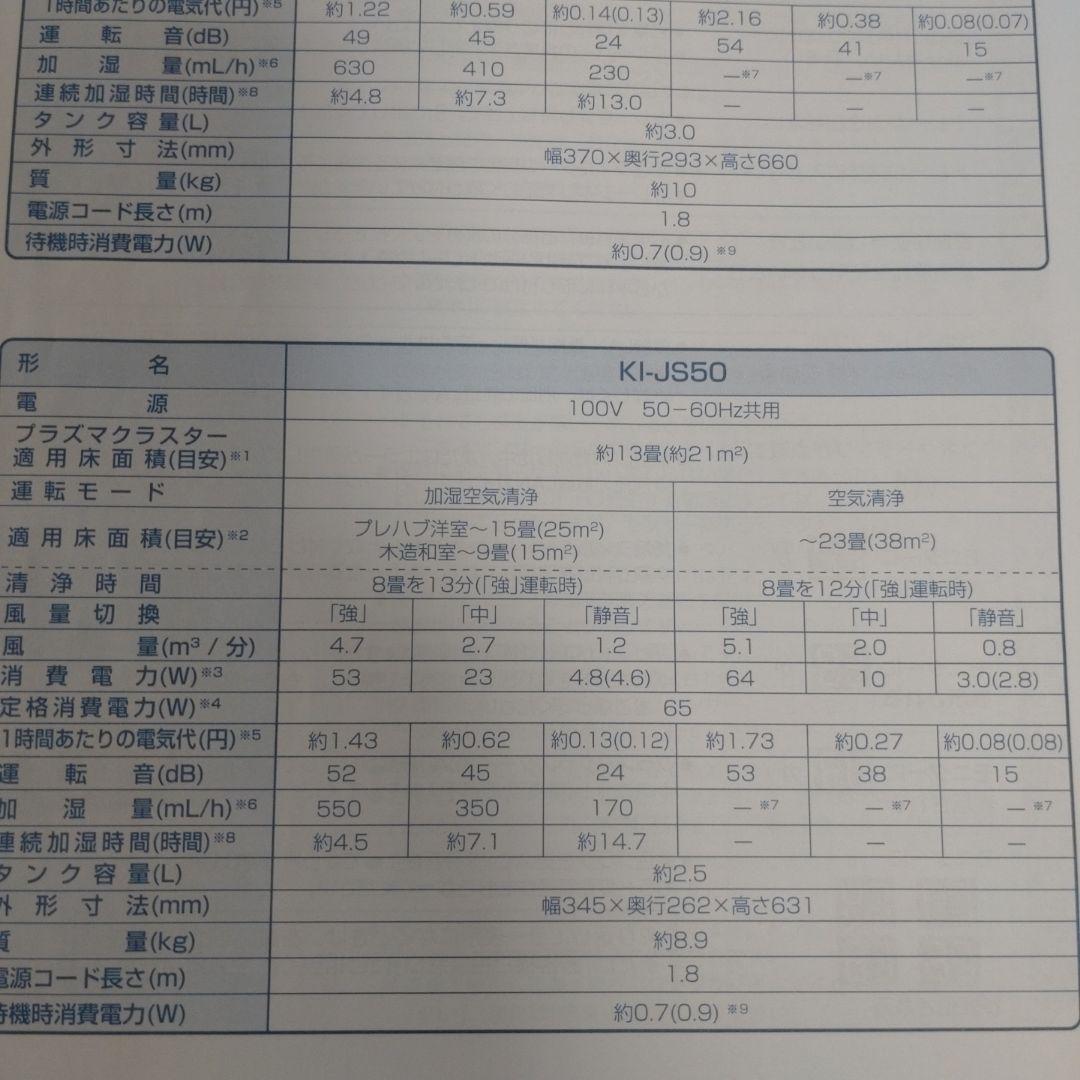 1時間あたりの電気代(円)※5 約1.22 約0.59 約0.14(0.13) 約2.16 約0.38 約0.08(0.07)
運転音(dB) 49 45 24 54 41 15
加湿量(mL/h)※6 630 410 230 —※7 —※7 —※7
連続加湿時間(時間)※8 約4.8 約7.3 約13.0 — — —
タンク容量(L) 約3.0
外形寸法(mm) 幅370×奥行293×高さ660
質量(kg) 約10
電源コード長さ(m) 1.8
待機時消費電力(W) 約0.7(0.9)※9
形名 KI-JS50
電源 100V 50−60Hz共用
プラズマクラスター
適用床面積(目安)※1 約13畳(約21m²)
運転モード 加湿空気清浄 空気清浄
適用床面積(目安)※2 プレハブ洋室〜15畳(25m²) 〜23畳(38m²)
木造和室〜9畳(15m²)
清浄時間 8畳を13分(「強」運転時) 8畳を12分(「強」運転時)
風量切換 「強」 「中」 「静音」 「強」 「中」 「静音」
風量(m³/分) 4.7 2.7 1.2 5.1 2.0 0.8
消費電力(W)※3 53 23 4.8(4.6) 64 10 3.0(2.8)
定格消費電力(W)※4 65
1時間あたりの電気代(円)※5 約1.43 約0.62 約0.13(0.12) 約1.73 約0.27 約0.08(0.08)
運転音(dB) 52 45 24 53 38 15
加湿量(mL/h)※6 550 350 170 —※7 —※7 —※7
連続加湿時間(時間)※8 約4.5 約7.1 約14.7 — — —
タンク容量(L) 約2.5
外形寸法(mm) 幅345×奥行262×高さ631
質量(kg) 約8.9
電源コード長さ(m) 1.8
待機時消費電力(W) 約0.7(0.9)※9